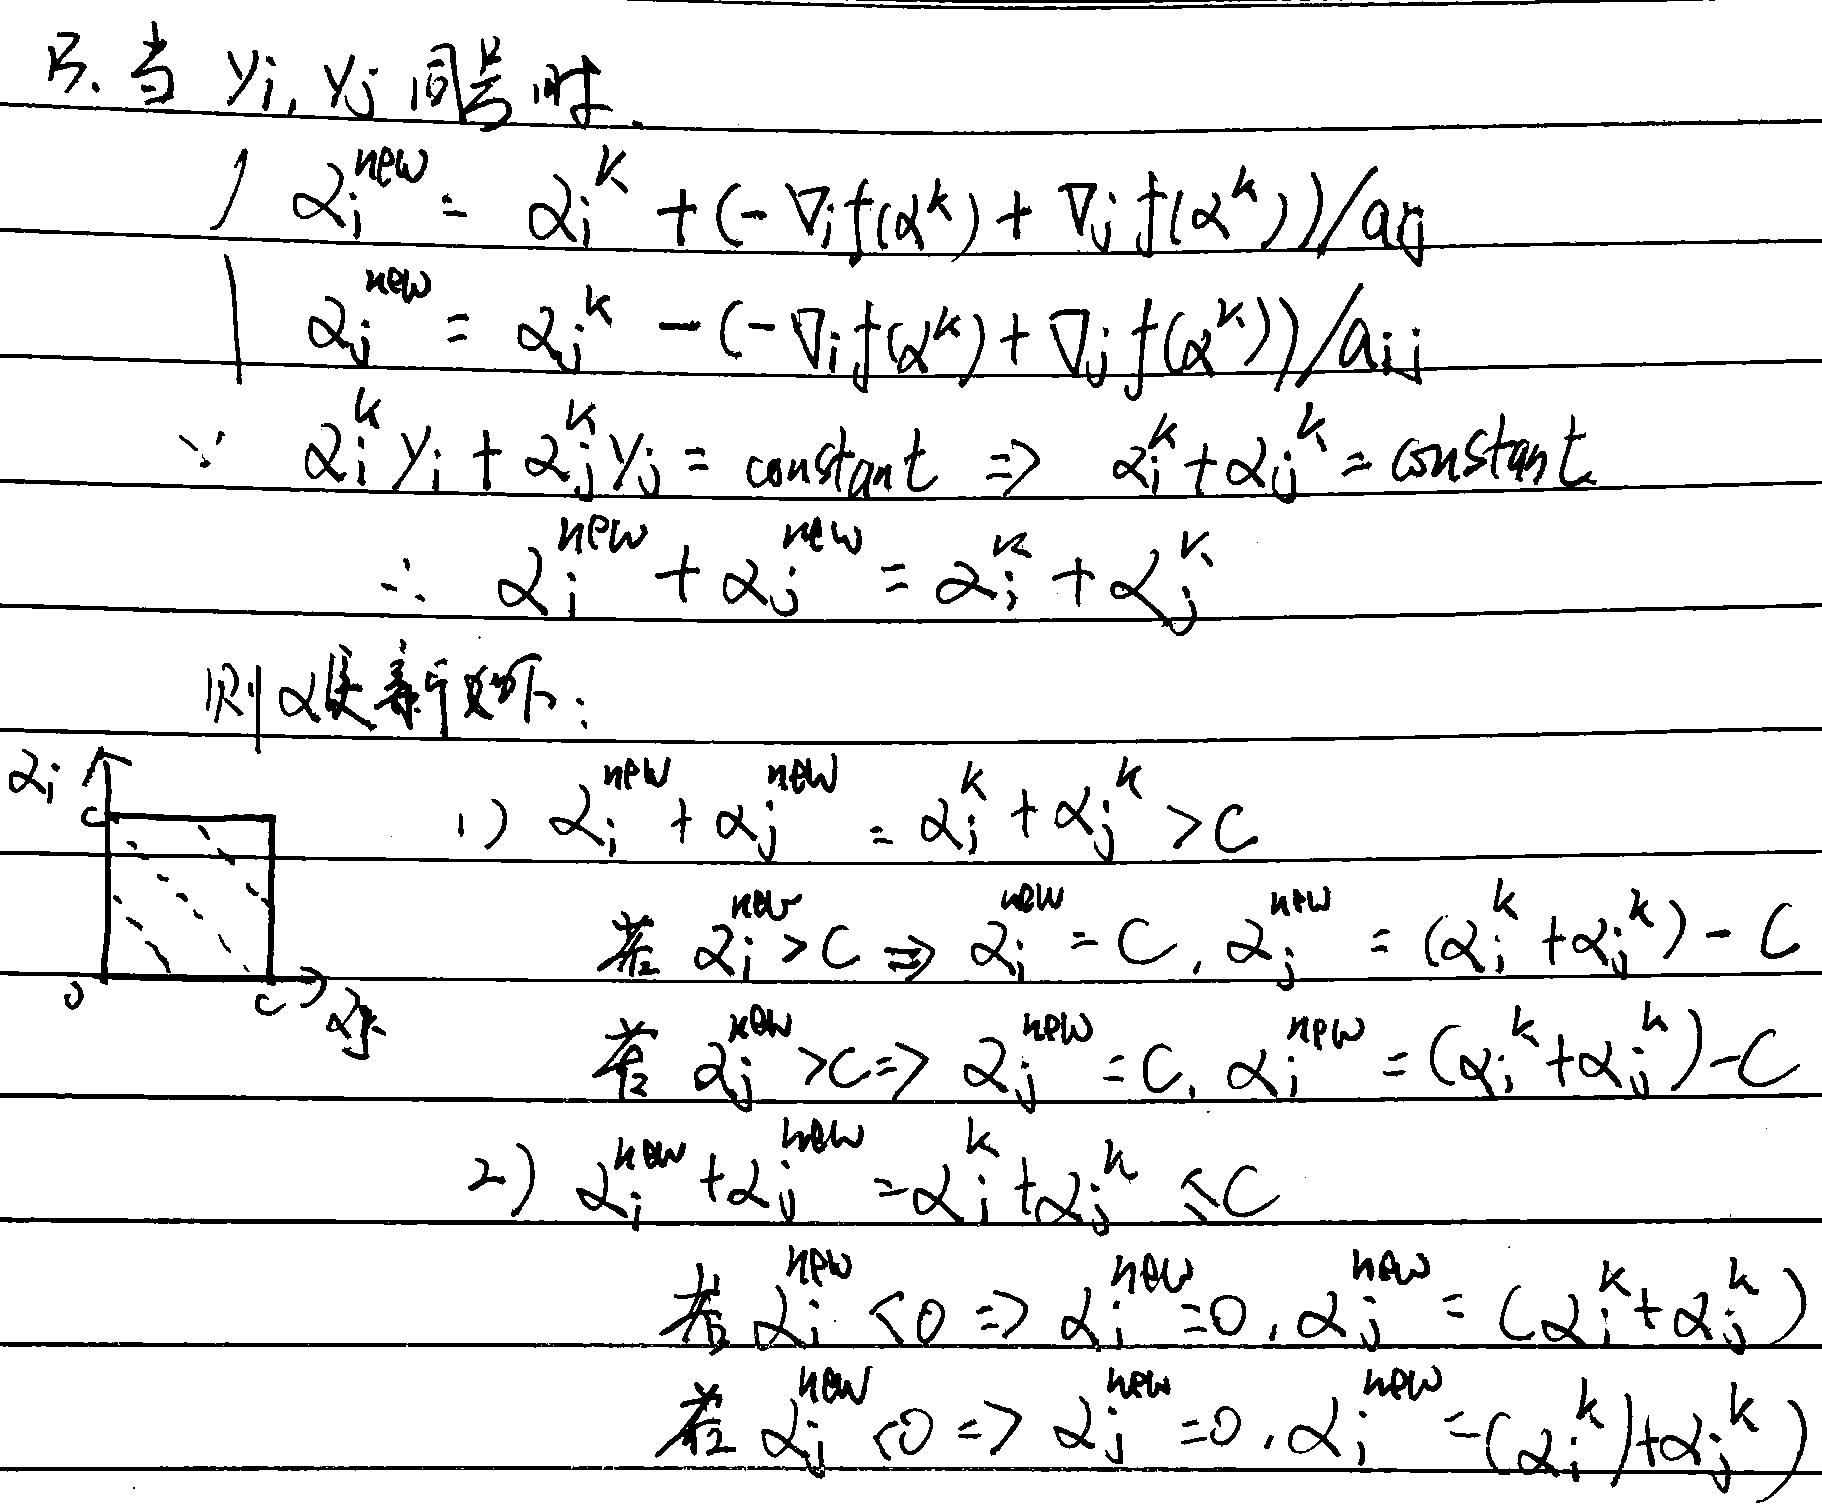 B. 当 yi, yj 同号时.
αi^new = αi^k + (-∇i f(α^k) + ∇j f(α^k))/aij
αj^new = αj^k - (-∇i f(α^k) + ∇j f(α^k))/aij
∵ αi^k yi + αj^k yj = constant ⇒ αi^k + αj^k = constant
∴ αi^new + αj^new = αi^k + αj^k
则α更新如下:
αi C O C αj
1) αi^new + αj^new = αi^k + αj^k > C
若 αi^new > C ⇒ αi^new = C, αj^new = (αi^k + αj^k) - C
若 αj^new > C ⇒ αj^new = C, αi^new = (αi^k + αj^k) - C
2) αi^new + αj^new = αi^k + αj^k ≤ C
若 αi^new < 0 ⇒ αi^new = 0, αj^new = (αi^k + αj^k)
若 αj^new < 0 ⇒ αj^new = 0, αi^new = (αi^k) + αj^k)